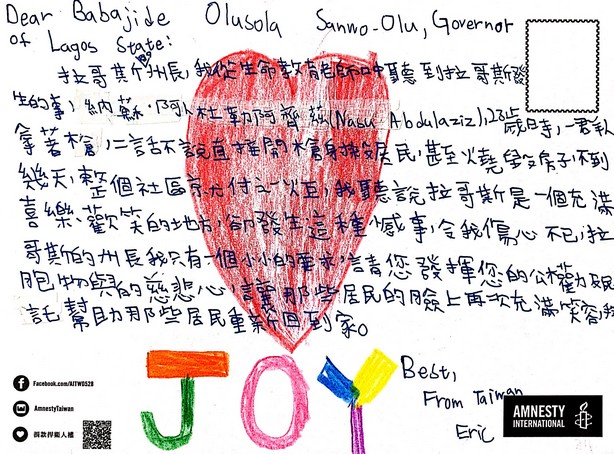 Dear Babajide Olusola Sanwo-Olu, Governor
of Lagos State:
拉哥斯州長,我從生命教育老師口中聽到拉哥斯發
生的事,納蘇·阿卜杜勒阿齊茲(Nasu Abdulaziz),23歲時,一群人
拿著槍,二話不說直接開槍身掃設居民,甚至燒毀房子,不到
幾天,整個社區就付之一炬,我聽說拉哥斯是一個充滿
喜樂、歡笑的地方,卻發生這種憾事,令我傷心不已,拉
哥斯的州長我只有一個小小的要求,請您發揮您的公權力及民
胞物與的慈悲心,讓那些居民的臉上再次充滿笑容,
託幫助那些居民重新回到家。
JOY
Best,
From Taiwan
Eric
Facebook.com/AITW0528
AmnestyTaiwan
捐款捍衛人權
AMNESTY
INTERNATIONAL